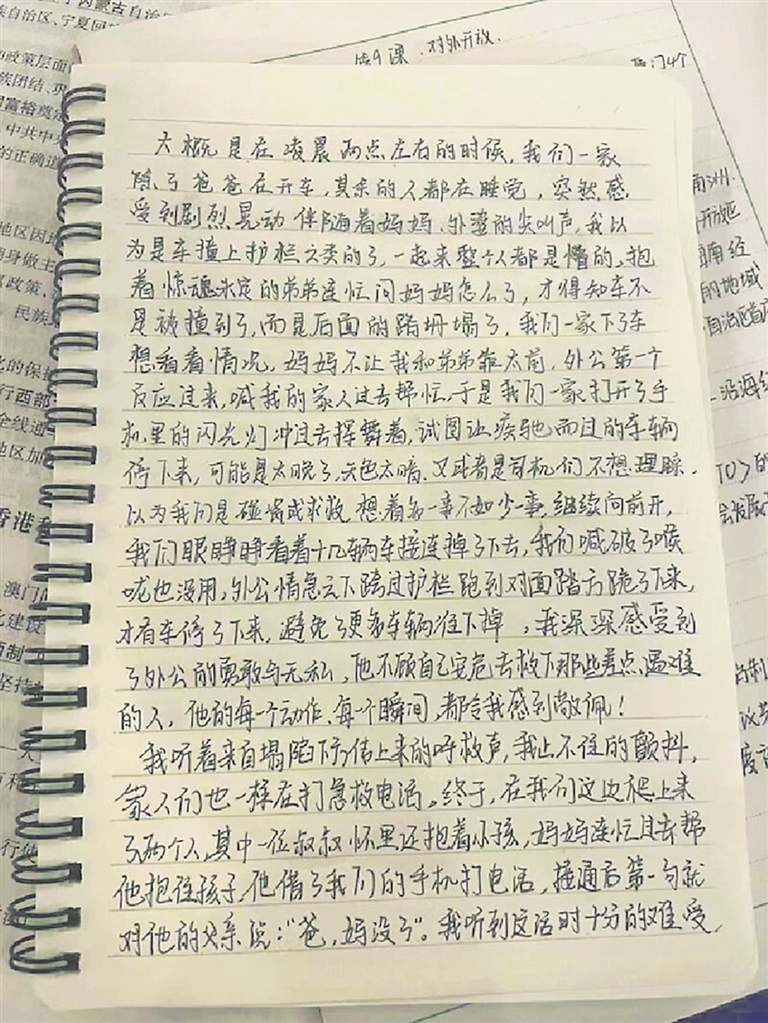 第9课 对外开放.
大概是在凌晨两点左右的时候,我们一家
除了爸爸在开车,其余的人都在睡觉,突然感
受到剧烈晃动伴随着妈妈、外婆的尖叫声,我以
为是车撞上护栏之类的了,一起来整个人都是懵的,抱
着惊魂未定的弟弟连忙问妈妈怎么了,才得知车不
是被撞到了,而是后面的路坍塌了,我们一家下了车
想看看情况,妈妈不让我和弟弟靠太前,外公第一个
反应过来,喊我的家人过去帮忙,于是我们一家打开了手
机里的闪光灯冲过去挥舞着,试图让疾驰而过的车辆
停下来,可能是太晚了,天色太暗、又或者是司机们不想理睬.
以为我们是碰瓷或求救 想着多一事不如少一事,继续向前开,
我们眼睁睁看着十几辆车接连掉了下去,我们喊破了喉
咙也没用,外公情急之下跨过护栏跑到对面路方跪了下来,
才有车停了下来,避免了更多车辆往下掉,我深深感受到
了外公的勇敢与无私,他不顾自己安危去救下那些差点遇难
的人,他的每一个动作、每一个瞬间,都令我感到敬佩!
我听着来自塌陷下方传上来的呼救声,我止不住的颤抖,
家人们也一样在打急救电话。终于,在我们这边爬上来
了两个人,其中一位叔叔怀里还抱着小孩,妈妈连忙过去帮
他抱住孩子,他借了我们的手机打电话,接通后第一句就
对他的父亲说:“爸,妈没了”。我听到这话时十分的难受,